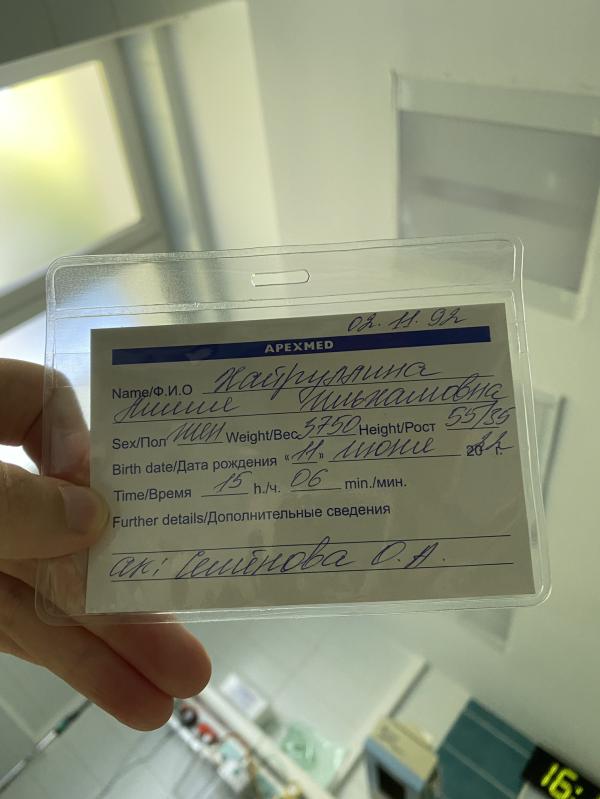 02.11.92
APEXMED
Name/Ф.И.О Хайруллина
Лилия Ильхамовна
Sex/Пол жен Weight/Вес 3750 Height/Рост 55/35
Birth date/Дата рождения «11» июня 2022 г.
Time/Время 15 h./ч. 06 min./мин.
Further details/Дополнительные сведения
ак: Семёнова О.А.
16: